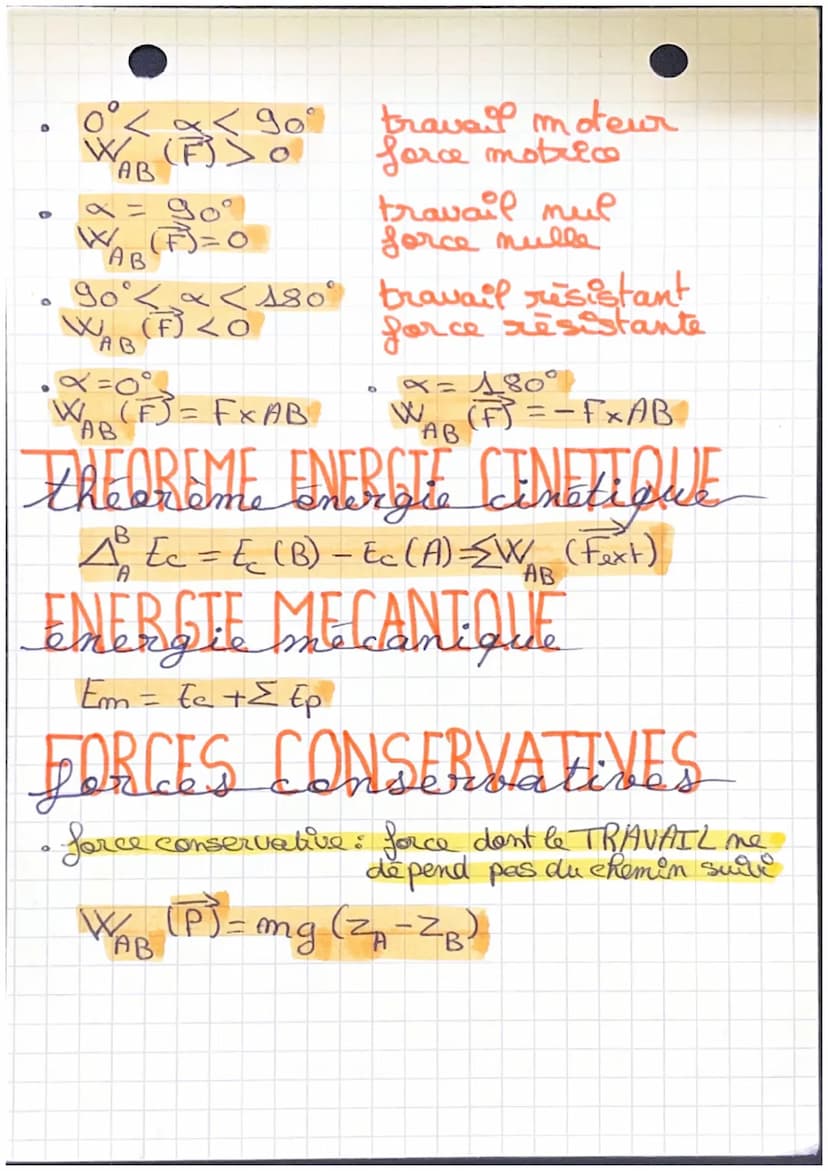 • 0° < α < 90° travail moteur
W_AB (F⃗) > 0 force motrice
• α = 90° travail nul
W_AB (F⃗) = 0 force nulle
• 90° < α < 180° travail résistant
W_AB (F⃗) < 0 force résistante
• α = 0° • α = 180°
W_AB (F⃗) = F x AB W_AB (F⃗) = - F x AB
THEOREME ENERGIE CINETIQUE
théorème énergie cinétique
Δ_A^B Ec = Ec (B) - Ec (A) = ΣW_AB (F⃗ext)
ENERGIE MECANIQUE
énergie mécanique
Em = Ec + Σ Ep
FORCES CONSERVATIVES
forces conservatives
• force conservative : force dont le TRAVAIL ne
dépend pas du chemin suivi
W_AB (P⃗) = mg (Z_A - Z_B)